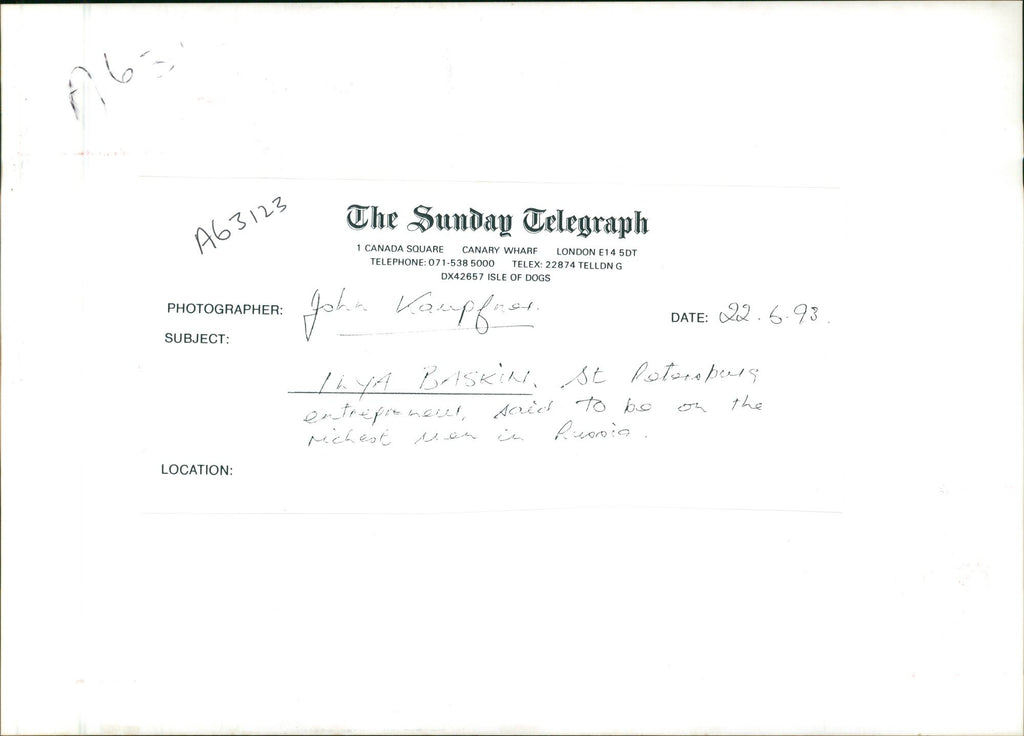 A63123
The Sunday Telegraph
1 CANADA SQUARE CANARY WHARF LONDON E14 5DT
TELEPHONE: 071-538 5000 TELEX: 22874 TELLDN G
DX42657 ISLE OF DOGS
PHOTOGRAPHER: John Kampfner.
DATE: 22.6.93.
SUBJECT:
ILYA BASKIN, St Petersburg
entrepreneur, said to be on the
richest men in Russia.
LOCATION: